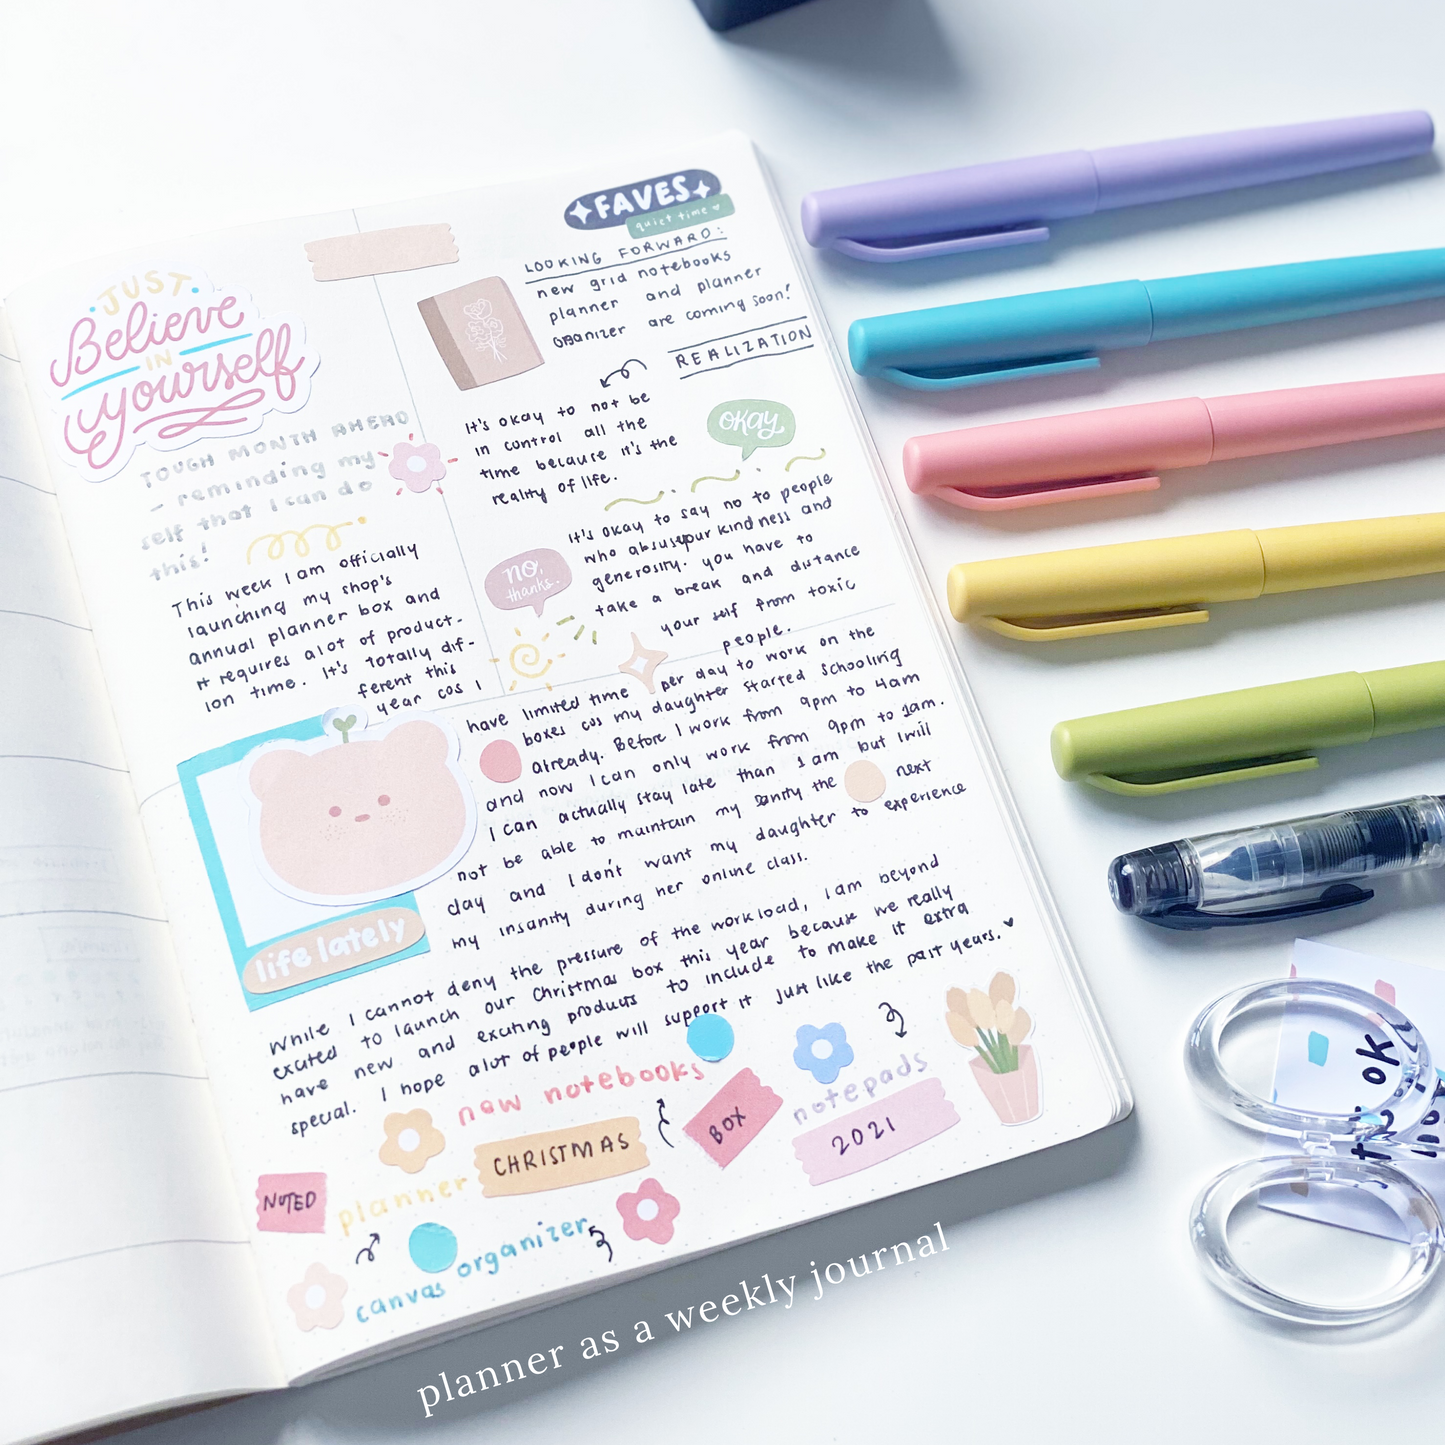 JUST
Believe
IN
yourself
TOUGH MONTH AHEAD
- reminding my
self that I can do
this!
This week I am officially
launching my shop's
annual planner box and
it requires alot of product-
ion time. It's totally dif-
ferent this
year cos I
FAVES
quiet time
LOOKING FORWARD:
new grid notebooks
planner and planner
organizer are coming soon!
REALIZATION
It's okay to not be
in control all the
time because it's the
reality of life.
okay
It's okay to say no to people
who absus your kindness and
generosity. you have to
take a break and distance
your self from toxic
people.
no,
thanks.
have limited time per day to work on the
boxes cos my daughter started schooling
already. Before I work from 9pm to 4am
and now I can only work from 9pm to 1am.
I can actually stay late than 1am but I will
not be able to maintain my sanity the next
day and I don't want my daughter to experience
my insanity during her online class.
life lately
While I cannot deny the pressure of the workload, I am beyond
excited to launch our Christmas box this year because we really
have new and exciting products to include to make it extra
special. I hope alot of people will support it just like the past years.
new notebooks
notepads
CHRISTMAS
BOX
2021
NOTED
planner
canvas organizer
planner as a weekly journal